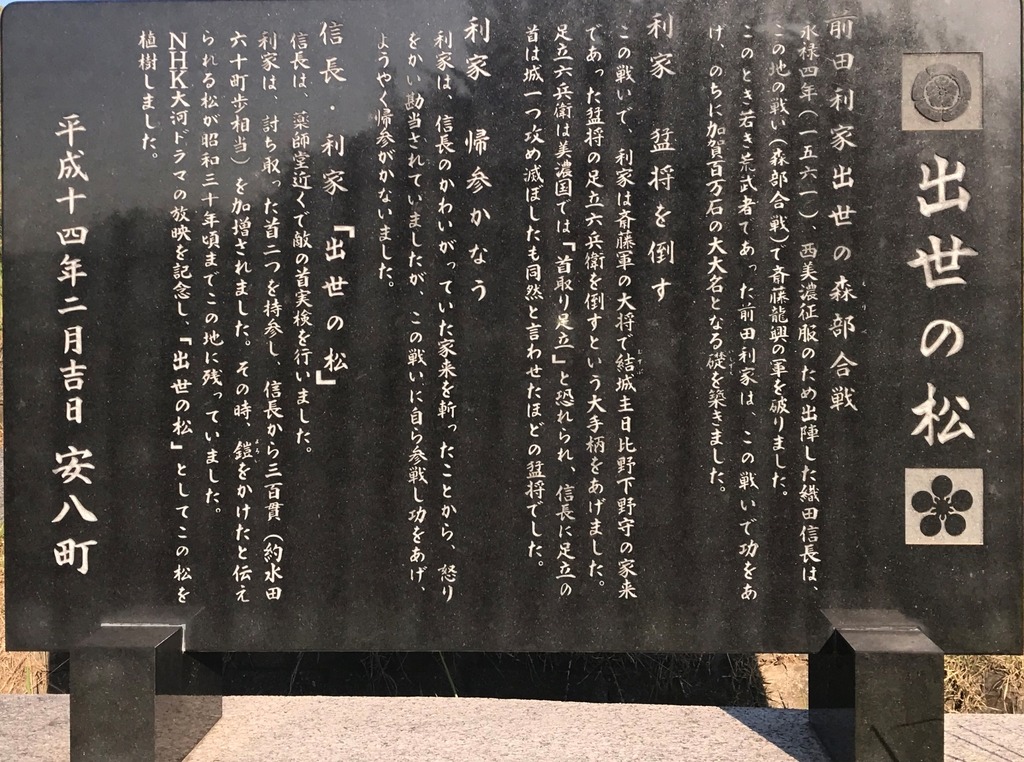 出世の松
前田利家出世の森部合戦
永禄四年(一五六一)、西美濃征服のため出陣した織田信長は、
この地の戦い(森部合戦)で斉藤龍興の軍を破りました。
このとき若き荒武者であった前田利家は、この戦いで功をあ
げ、のちに加賀百万石の大大名となる礎を築きました。
利家 猛将を倒す
この戦いで、利家は斎藤軍の大将で結城主日比野下野守の家来
であった猛将の足立六兵衛を倒すという大手柄をあげました。
足立六兵衛は美濃国では「首取り足立」と恐れられ、信長に足立の
首は城一つ攻め滅ぼしたも同然と言わせたほどの猛将でした。
利家 帰参かなう
利家は、信長のかわいがっていた家来を斬ったことから、怒り
をかい勘当されていましたが、この戦いに自ら参戦し功をあげ、
ようやく帰参がかないました。
信長・利家「出世の松」
信長は、薬師堂近くで敵の首実検を行いました。
利家は、討ち取った首二つを持参し、信長から三百貫(約水田
六十町歩相当)を加増されました。その時、鎧をかけたと伝え
られる松が昭和三十年頃までこの地に残っていました。
NHK大河ドラマの放映を記念し、「出世の松」としてこの松を
植樹しました。
平成十四年二月吉日 安八町